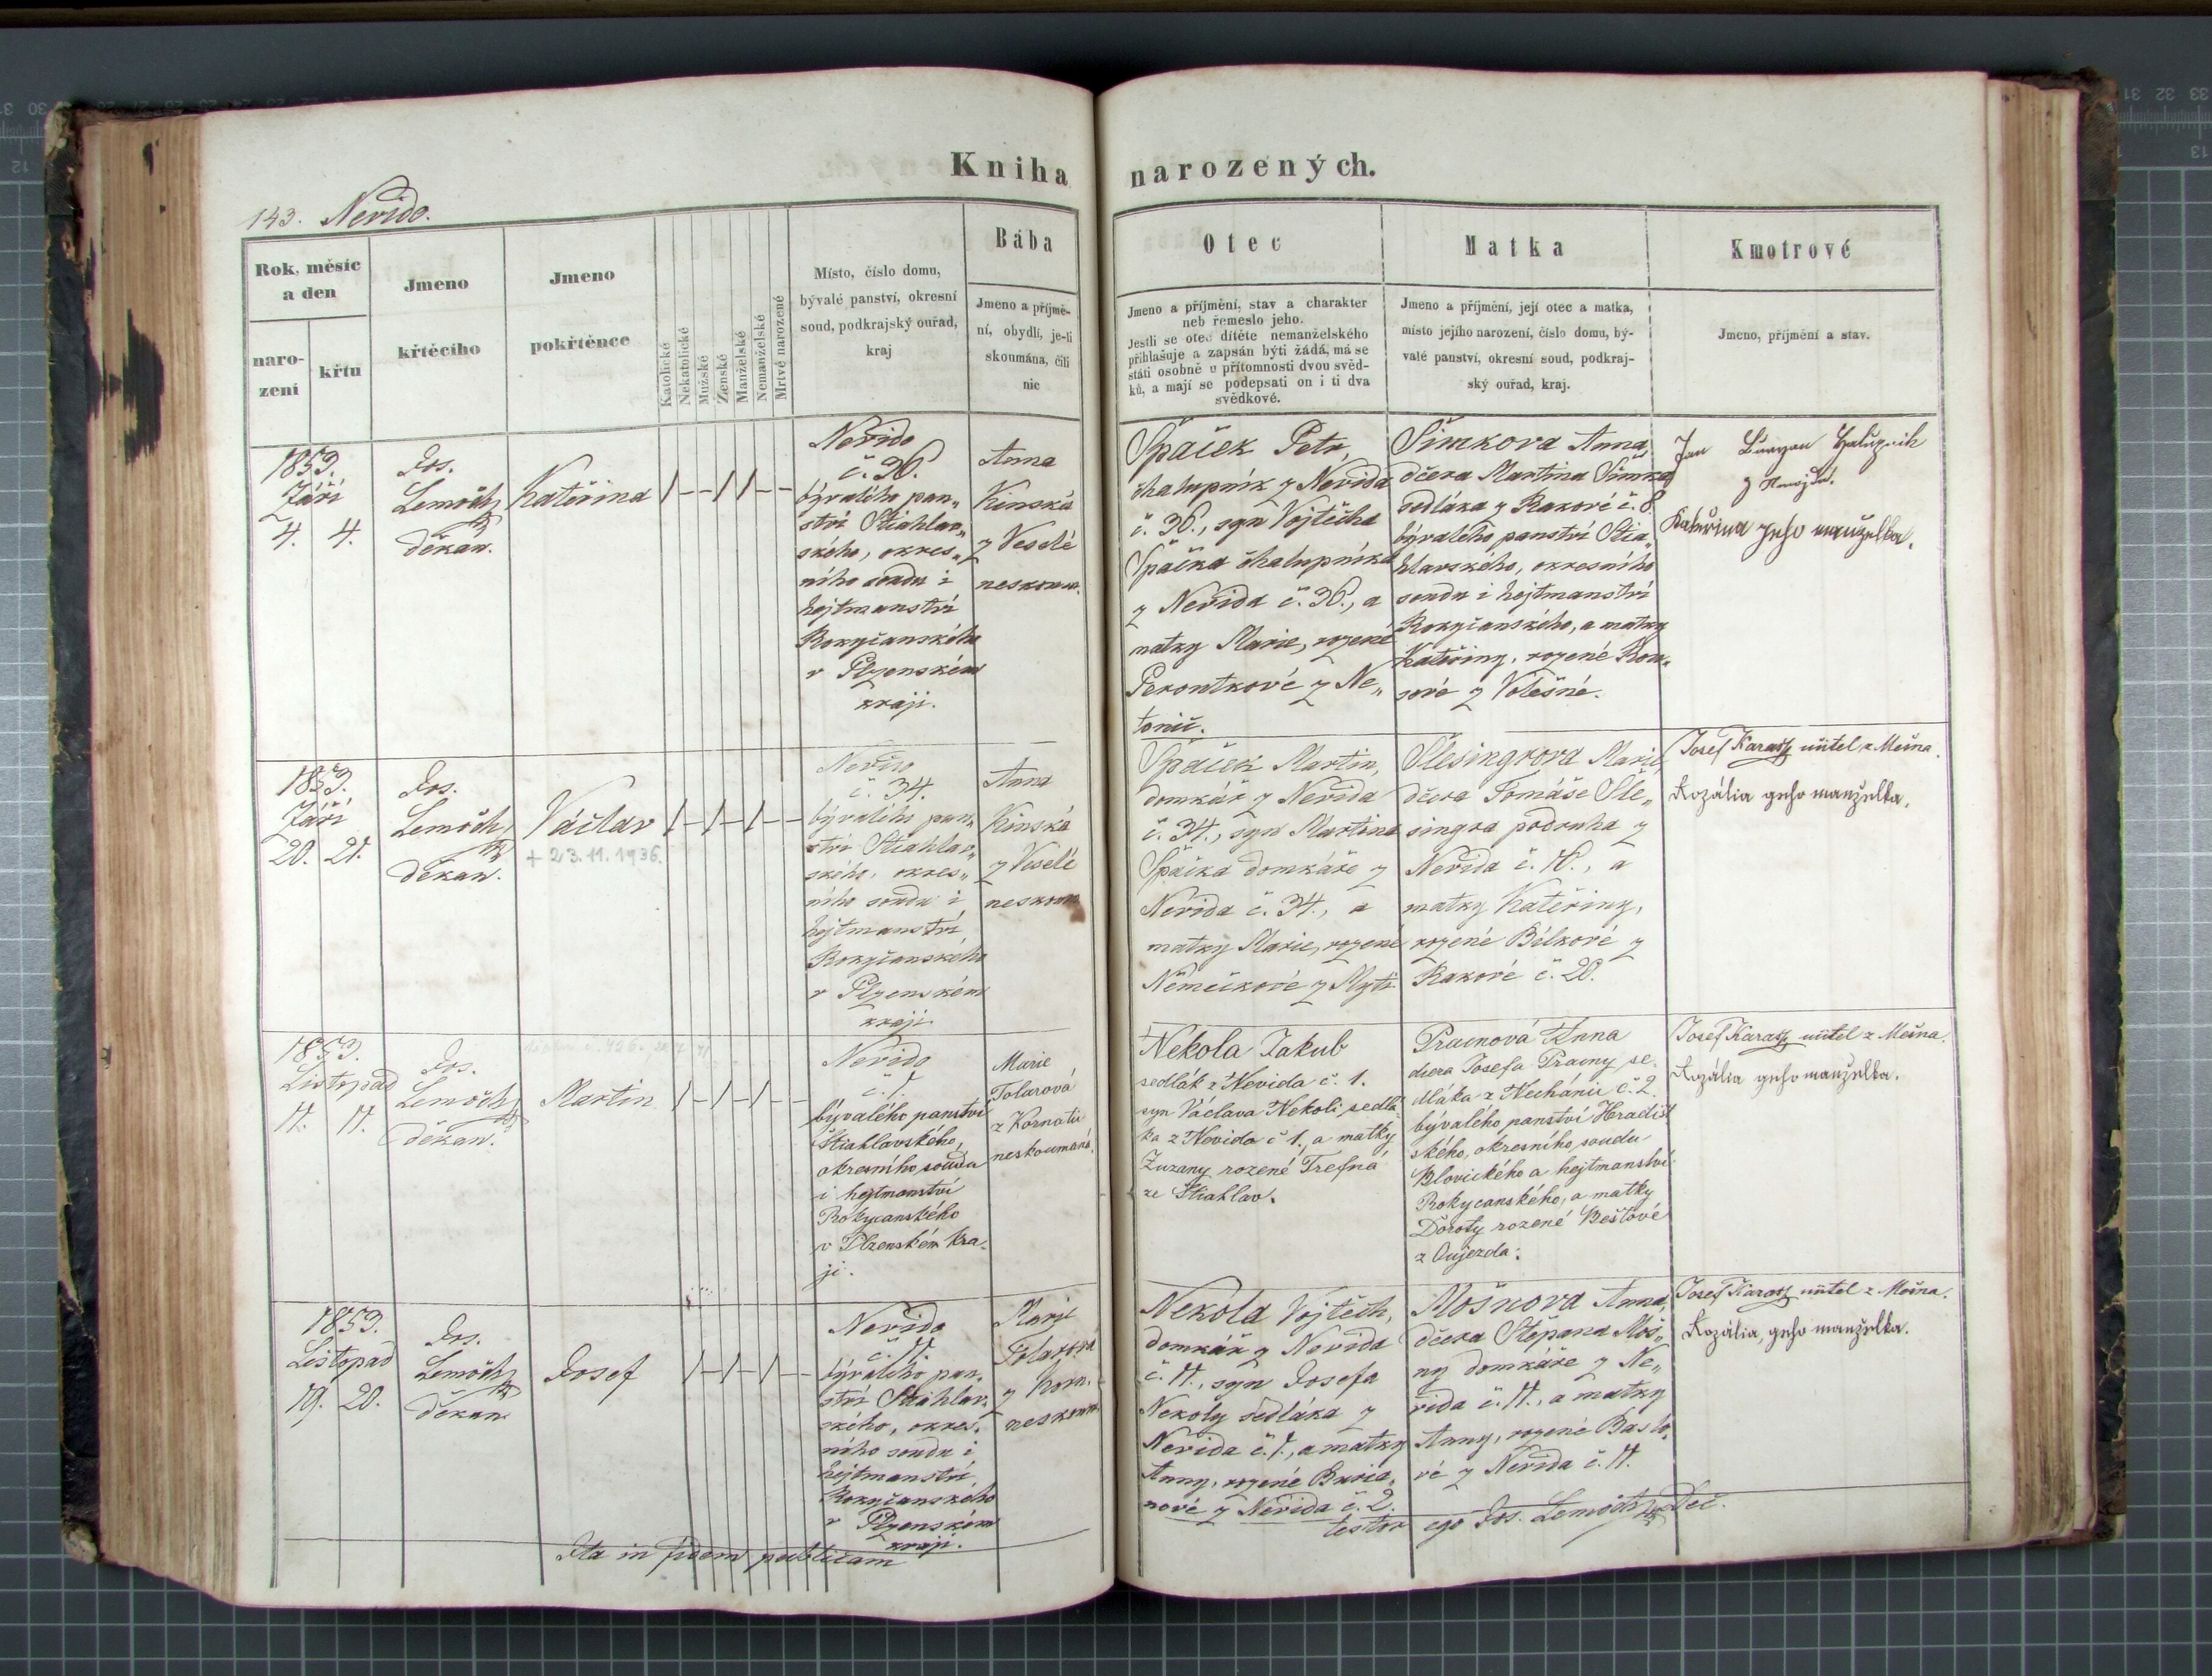 Kniha narozených.
143. Nevido.
Rok, měsíc
a den
naro-
zení
křtu
Jmeno
křtěcího
Jmeno
pokřtěnce
Katolické
Nekatolické
Mužské
Ženské
Manželské
Nemanželské
Mrtvě narozené
Místo, číslo domu,
bývalé panství, okresní
soud, podkrajský ouřad,
kraj
Bába
Jmeno a příjmě-
ní, obydlí, je-li
skoumána, čili
nic
Otec
Jmeno a příjmění, stav a charakter
neb řemeslo jeho.
Jestli se otec dítěte nemanželského
přihlašuje a zapsán býti žádá, má se
státi osobně v přítomnosti dvou svěd-
ků, a mají se podepsati on i ti dva
svědkové.
Matka
Jmeno a příjmění, její otec a matka,
místo jejího narození, číslo domu, bý-
valé panství, okresní soud, podkraj-
ský ouřad, kraj.
Kmotrové
Jmeno, příjmění a stav.
1853.
Září
4. 4.
Jos.
Lemoch
děkan.
Kateřina
Nevido
č. 36.
bývalého pan„
ství Štiahlav„
ského, okres„
ního soudu i
hejtmanství
Rokycanského
v Plzenském
kraji.
Anna
Kinská
z Veselé
neskoum.
Špaček Petr,
chalupník z Nevida
č. 36., syn Vojtěcha
Špačka chalupníka
z Nevida č. 36., a
matky Marie, rozené
Perontkové z Ne„
tonic.
Šimkova Anna,
dčera Martina Šimka
sedláka z Rakové č. 8.
bývalého panství Štia„
hlavského, okresního
soudu i hejtmanství
Rokycanského, a matky
Kateřiny, rozené Kou„
sové z Volešné.
Jan
Kateřina jeho manželka.
1853.
Září
20. 21.
Jos.
Lemoch
děkan.
Václav
+ 23.11.1936.
Nevido
č. 34.
bývalého pan„
ství Štiahlav„
ského, okres„
ního soudu i
hejtmanství
Rokycanského
v Plzenském
kraji.
Anna
Kinská
z Veselé
neskoum
Špaček Martin,
domkář z Nevida
č. 34., syn Martina
Špačka domkáře z
Nevida č. 34., a
matky Marie, rozené
Němečkové z Mýti.
Šlesingrova Marie,
dčera Tomáše Šle„
singra podruha z
Nevida č. 16., a
matky Kateřiny,
rozené Bělkové z
Rakové č. 20.
Josef Karasy učitel z Mešna.
Rozália geho manželka.
1853.
Listopad
11. 11.
Jos.
Lemoch
děkan.
Martin
Nevido
č. 1.
bývalého panství
Štiahlavského,
okresního soudu
i hejtmanství
Rokycanského
v Plzenském kra-
ji.
Marie
Tolarová
z Kornatic
neskoumaná.
Nekola Jakub
sedlák z Nevida č. 1.
syn Václava Nekoli, sedlá-
ka z Nevida č 1., a matky
Zuzany rozené Trefná
ze Štiahlav.
Pracnová Anna
dcera Josefa Pracny se-
dláka z Nechánic č. 2
bývalého panství Hradišt
ského, okresního soudu
Blovického a hejtmanství
Rokycanského, a matky
Doroty rozené Beštové
z Oujezda.
Josef Karasy učitel z Mešna.
Rozália geho manželka.
1853.
Listopad
19. 20.
Jos.
Lemoch
děkan
Josef
Nevido
č. 11.
bývalého pan„
ství Štiahlav„
ského, okres„
ního soudu i
hejtmanství
Rokycanského
v Plzenském
kraji.
Marje
Tolarova
z Korn.
neskoum.
Nekola Vojtěch,
domkář z Nevida
č. 11., syn Josefa
Nekoly sedláka z
Nevida č. 1., a matky
Anny, rozené Buria„
nové z Nevida č. 2.
Mošnova Anna,
dčera Štěpana Moš„
ny domkáře z Ne„
vida č. 11., a matky
Anny, rozené Basto„
vé z Nevida č. 11.
Josef Karasy učitel z Mešna.
Rozália, geho manželka.
Ita in fidem publicam testor ego Jos. Lemoch Deč.